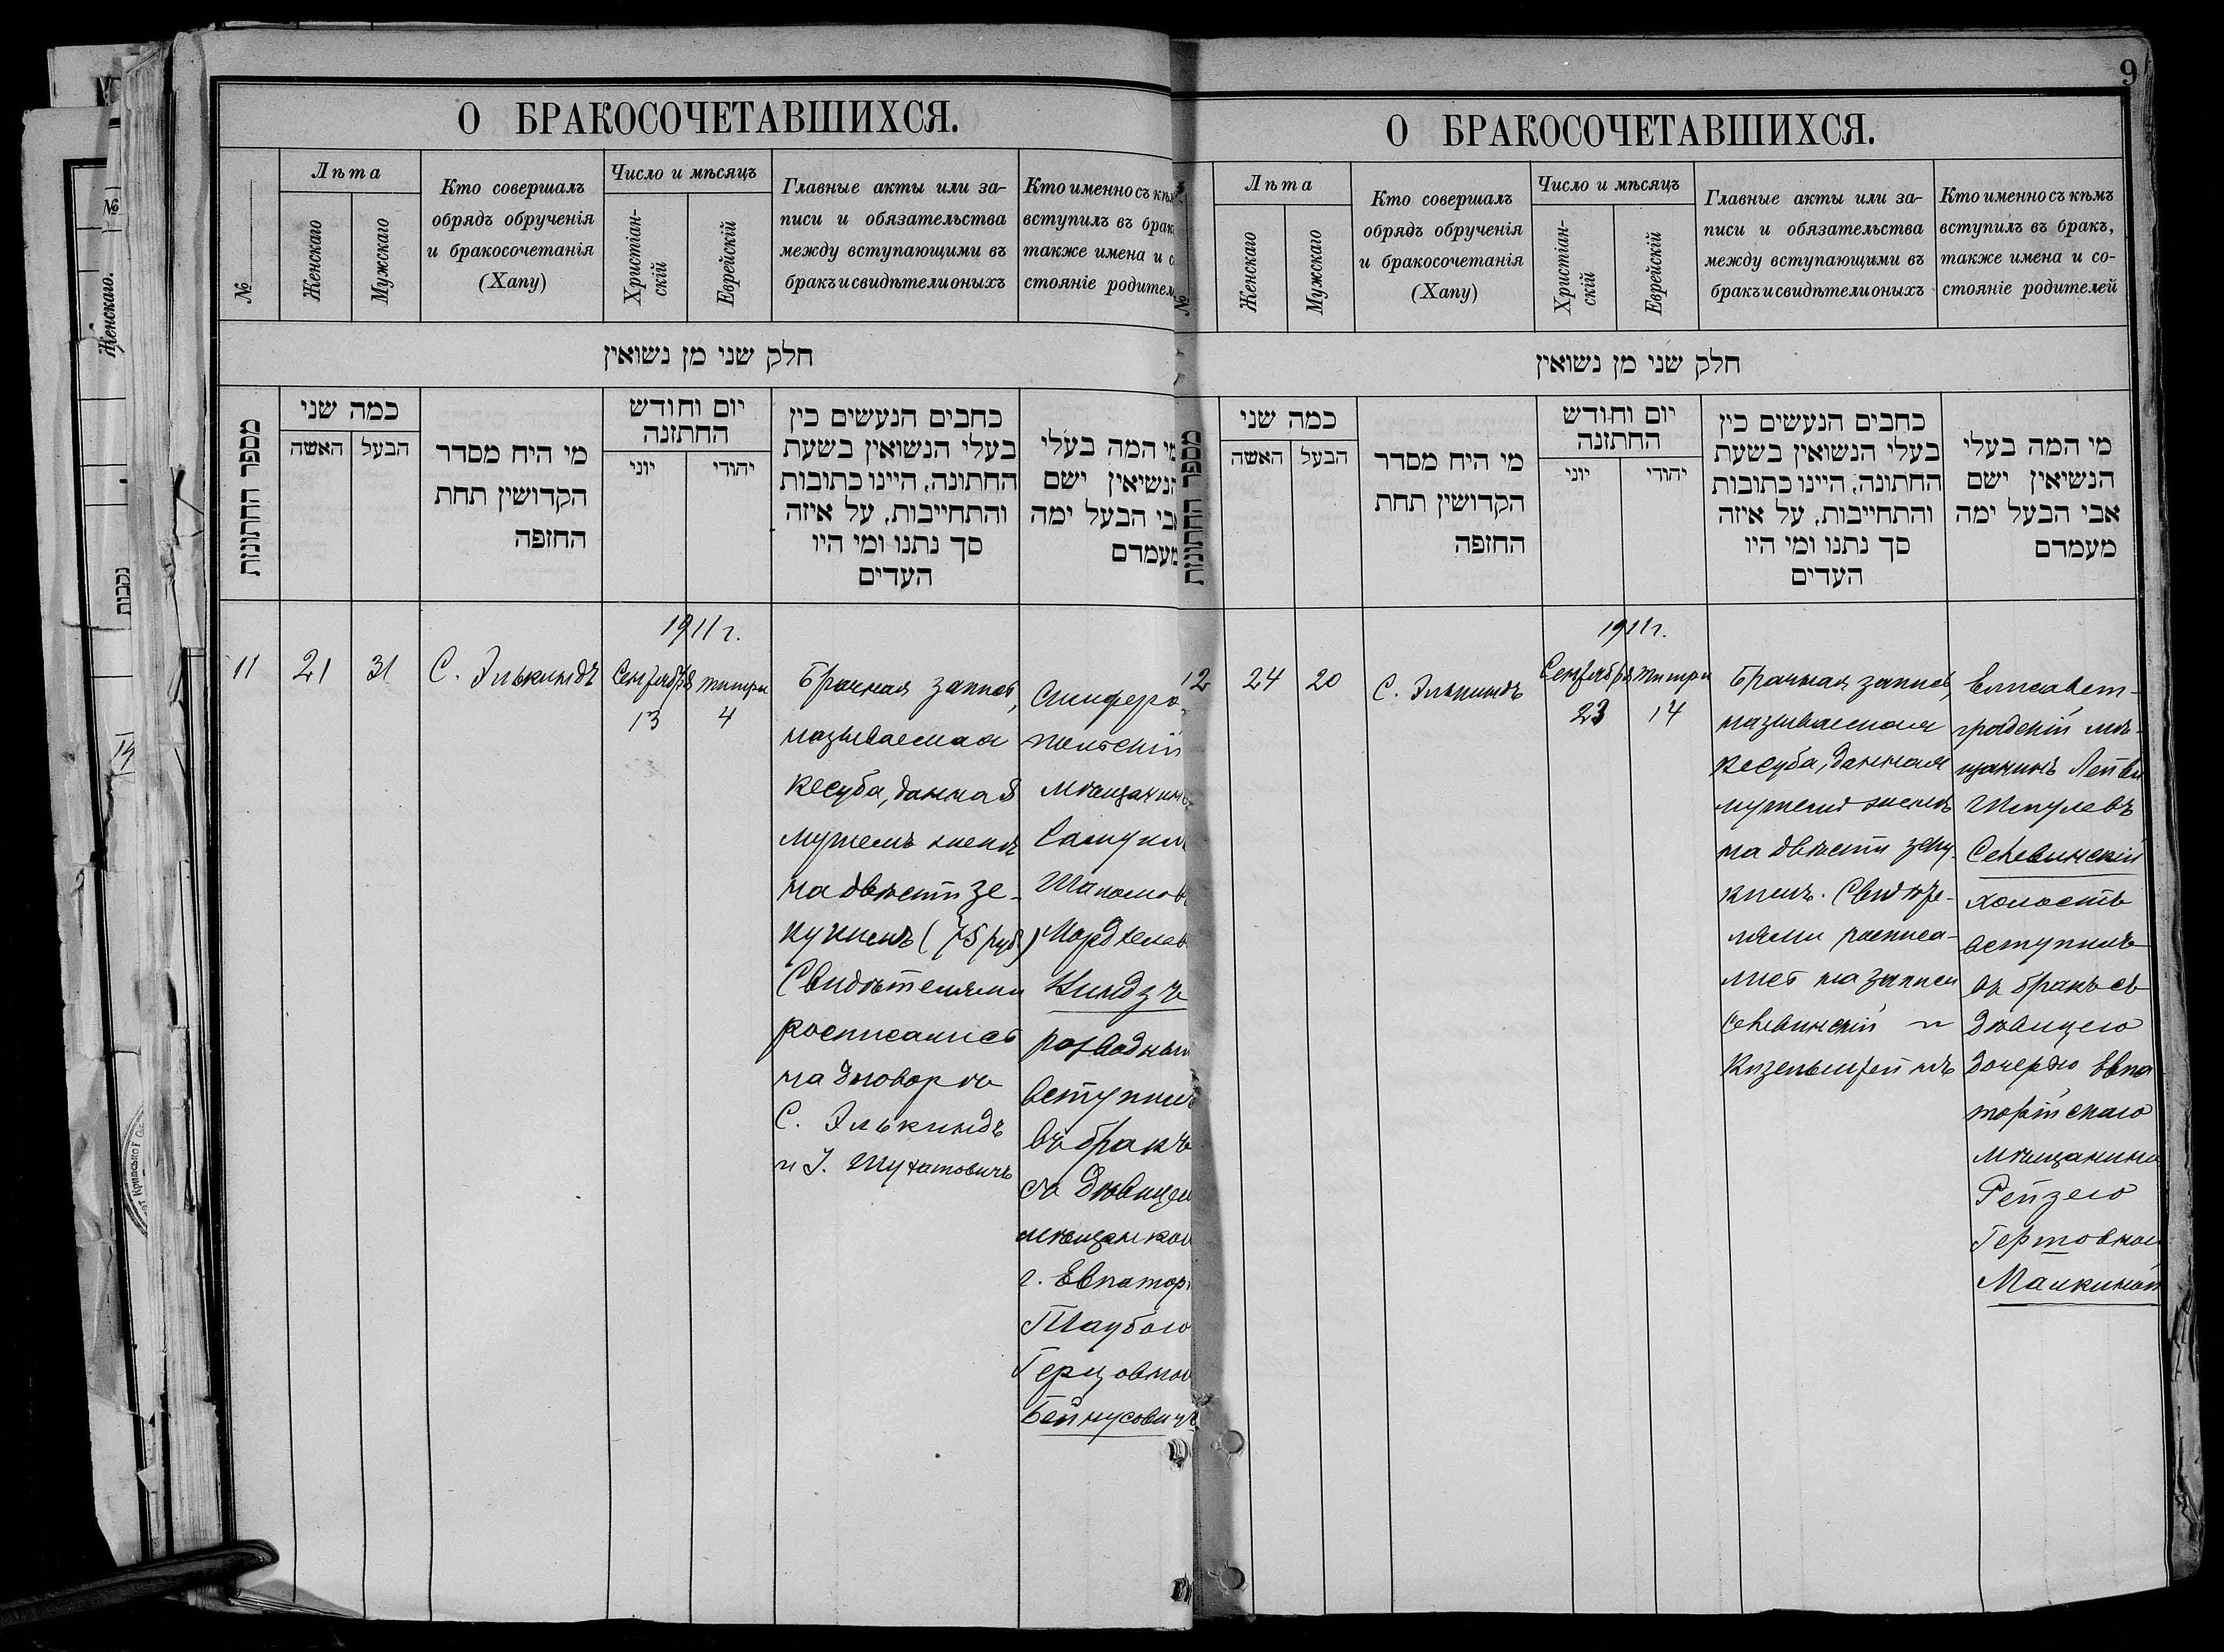 О БРАКОСОЧЕТАВШИХСЯ.
№
Лѣта
Женскаго
Мужскаго
Кто совершалъ
обрядъ обрученія
и бракосочетанія
(Хапу)
Число и мѣсяцъ
Христіан-
скій
Еврейскій
Главные акты или за-
писи и обязательства
между вступающими въ
бракъ и свидѣтели оныхъ
Кто именно съ кѣм
вступилъ въ брак
также имена и с
стояніе родител
חלק שני מן נשואין
מספר החתונות
כמה שני
האשה
הבעל
מי היח מסדר
הקדושין תחת
החופה
יום וחודש
החתונה
יוני
יהודי
כחבים הנעשים כין
בעלי הנשואין בשעת
החתונה, היינו כתובות
והתחייבות, על איזה
סך נתנו ומי היו
העדים
מי המה בעלי
הנשיאין ישם
אבי הבעל ימה
מעמדם
1911 г.
11
21
31
С. Элькиндъ
Сентября
13
тишри
4
Брачная запись,
называемая
кесуба, данная
мужемъ женѣ
на двѣсти зе-
кукимъ (75 руб.)
Свидѣтелями
росписались
на договорѣ
С. Элькиндъ
и І. Шухатовичъ
Симферо-
польскій
мѣщанинъ
Самуил
Шаломов
Мордхелев
Киндзъ
разводным
вступилъ
въ бракъ
съ дѣвицею
мѣщанкою
г. Евпатор
Таубою
Герцовною
Бейнусовичъ
9
О БРАКОСОЧЕТАВШИХСЯ.
№
Лѣта
Женскаго
Мужскаго
Кто совершалъ
обрядъ обрученія
и бракосочетанія
(Хапу)
Число и мѣсяцъ
Христіан-
скій
Еврейскій
Главные акты или за-
писи и обязательства
между вступающими въ
бракъ и свидѣтели оныхъ
Кто именно съ кѣмъ
вступилъ въ бракъ,
также имена и со-
стояніе родителей
חלק שני מן נשואין
מספר החתונות
כמה שני
האשה
הבעל
מי היח מסדר
הקדושין תחת
החופה
יום וחודש
החתונה
יוני
יהודי
כחבים הנעשים כין
בעלי הנשואין בשעת
החתונה, היינו כתובות
והתחייבות, על איזה
סך נתנו ומי היו
העדים
מי המה בעלי
הנשיאין ישם
אבי הבעל ימה
מעמדם
1911 г.
12
24
20
С. Элькиндъ
Сентября
23
тишри
14
Брачная запись,
называемая
кесуба, данная
мужемъ женѣ
на двѣсти зеку-
кимъ. Свидѣте-
лями росписа-
лись на записи
Сегевинскій и
Елисавет-
градскій мѣ-
щанинъ Лейба
Шмулевъ
Сегевинскій
холостъ
вступилъ
въ бракъ съ
дѣвицею
дочерью Евпа
торійскаго
мѣщанина
Рейзею
Гертовною
Малкиной